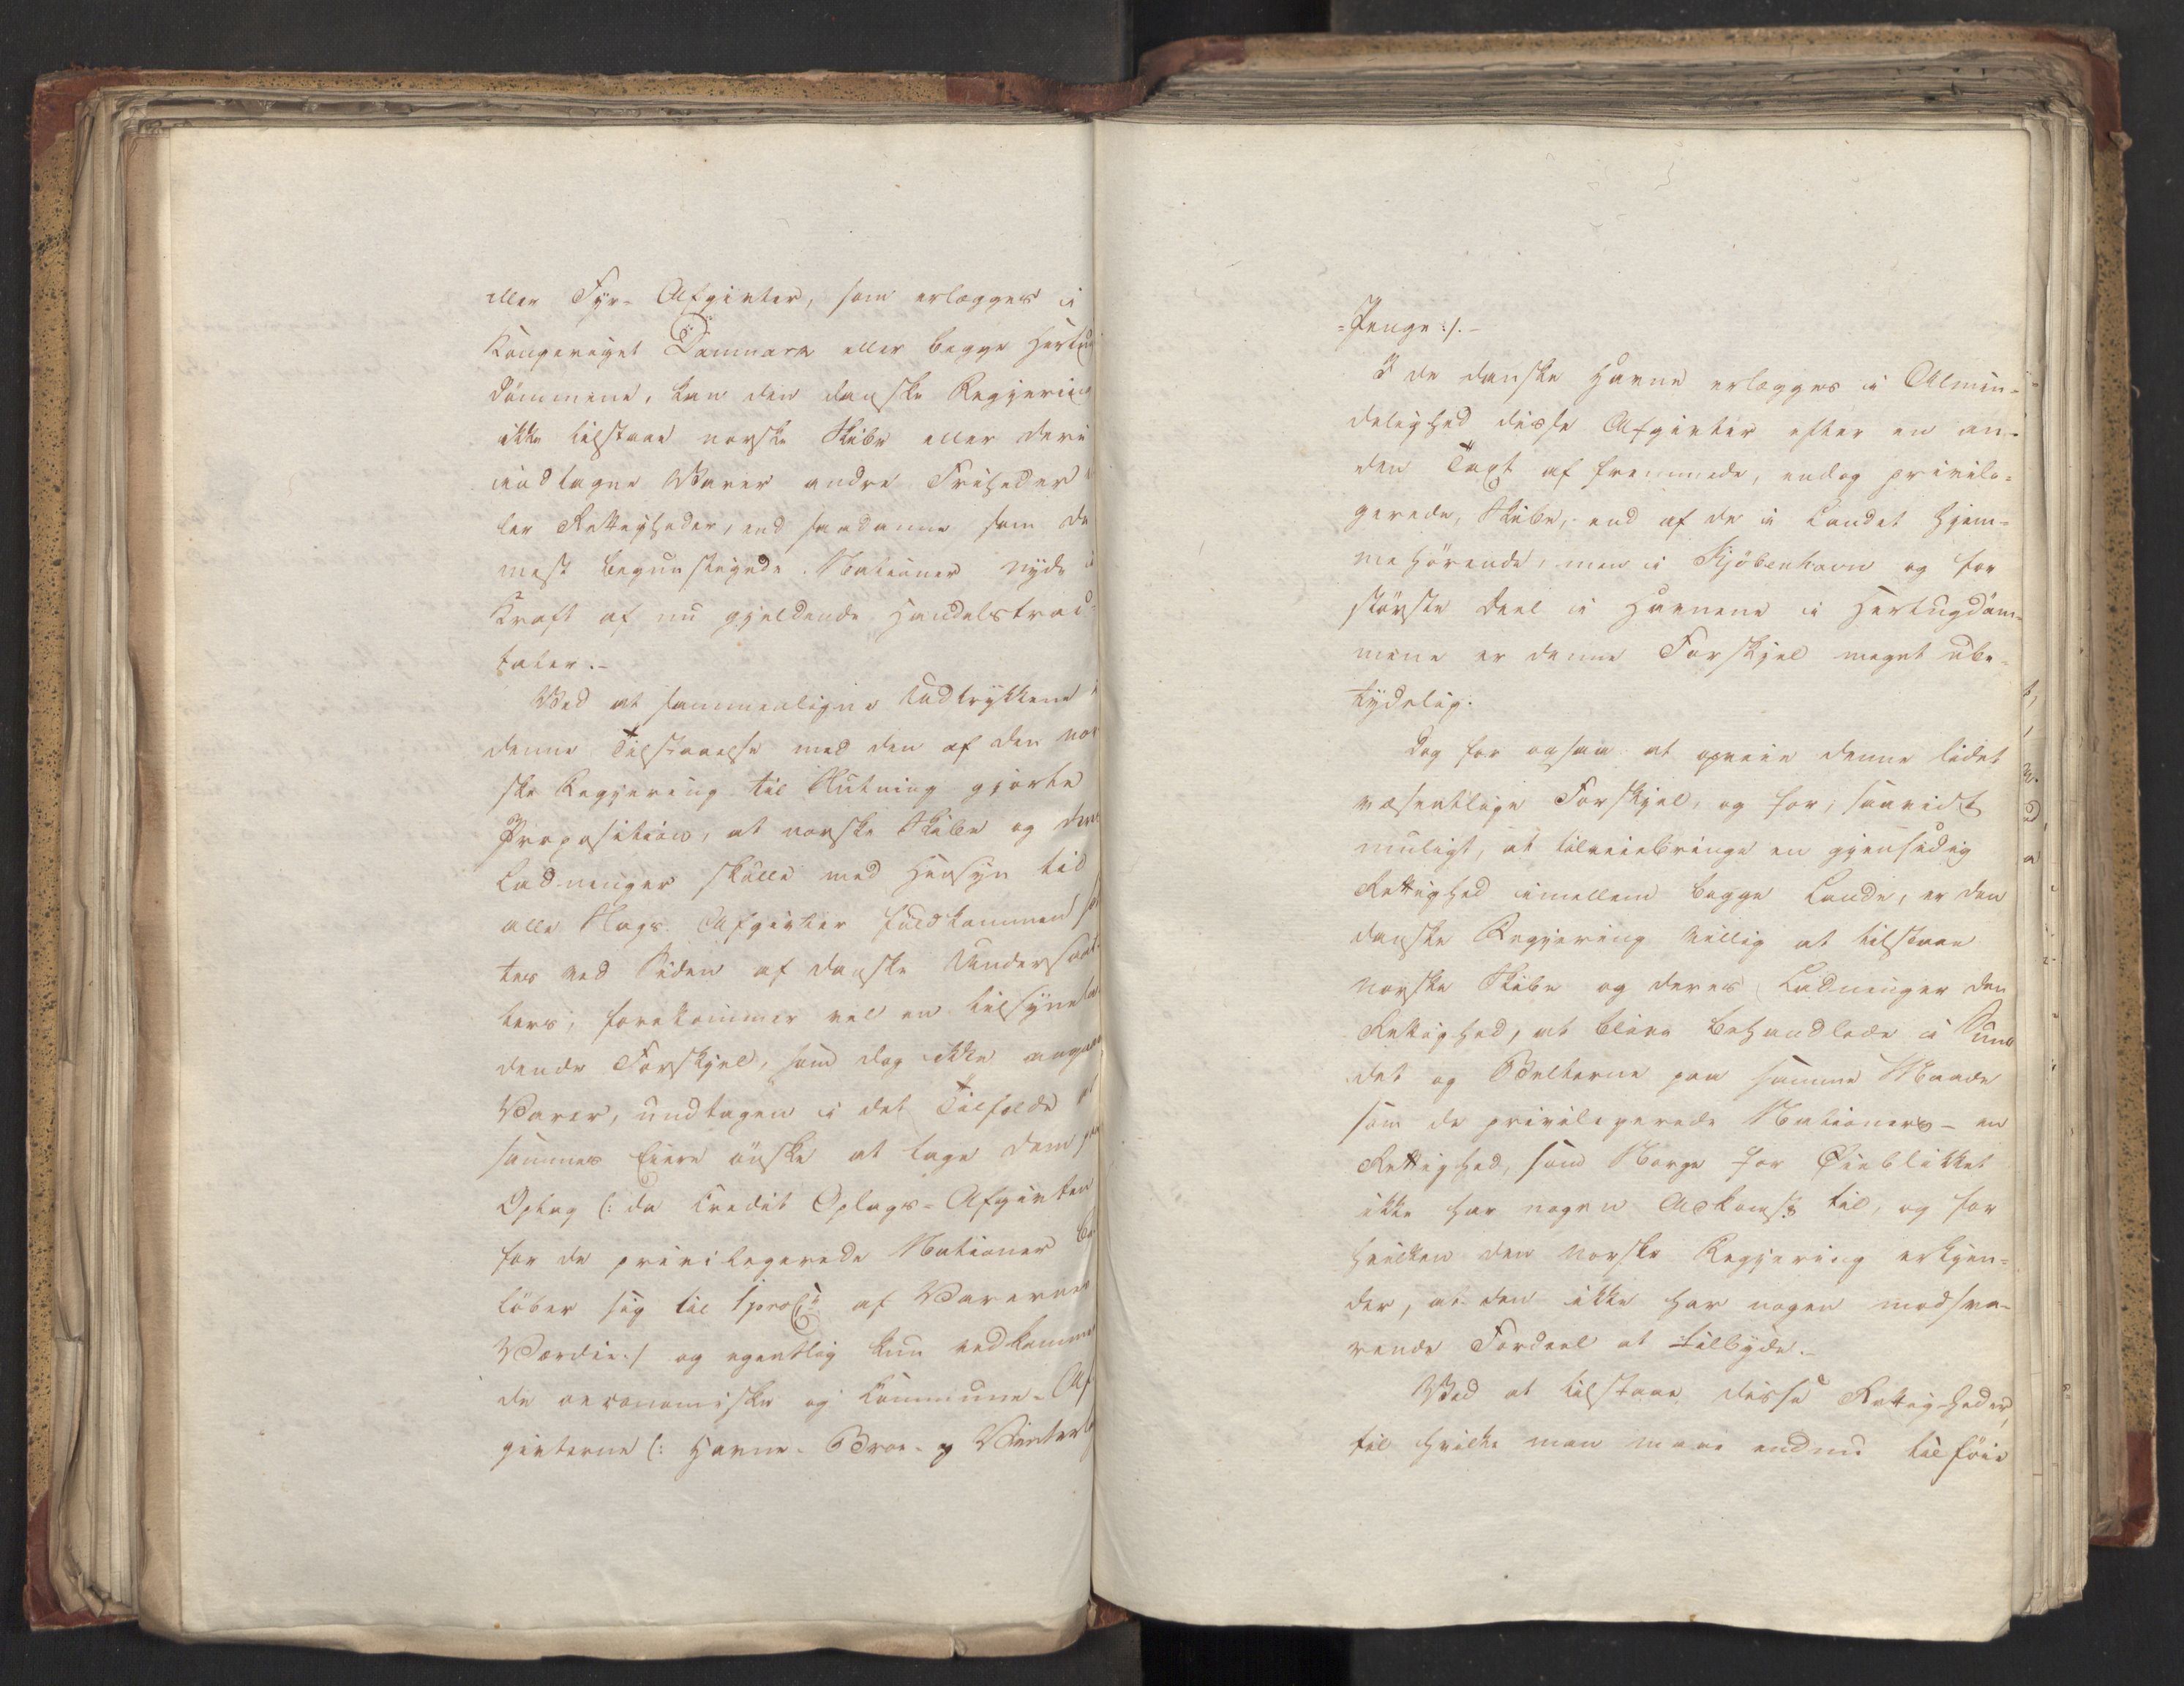 eller Fyr- Afgivter, som erlægges i
Kongeriget Danmark eller begge Hertug
dömmene, kan den danske Regjering
ikke tilstaae norske Skibe eller deri
indtagne Varer andre Friheder
ler Rettigheder, end saadanne som de
mest begunstigede Nationer nyde i
Kraft af nu gjeldende Handelstrac-
tater.-
Ved at sammenligne Udtrykkene i
denne Tilstaaelse med den af den nor
ske Regjering til Slutning gjorte
Proposition, at norske Skibe og deres
Ladninger skulle med Hensyn til
alle Slags Afgivter fuldkommen sæt
tes ved Siden af danske Undersaat-
ters, forekommer vel en tilsynela
dende Forskjel, som dog ikke angaaer
Varer, undtagen i det Tilfælde at
sammes Eiere önske at tage dem paa
Oplag (: da Credit Oplags-Afgivten
for de privilegerede Nationer be-
löber sig til 1 proC af Varernes
Værdie:/ og egentlig kun vedkomme
de oeconomiske og Commune-Af
givterne (: Havne- Broe- og Vinterlags
=Penge:/.-
I de danske Havne erlægges i Almin-
delighed disse Afgivter efter en an-
den Taxt af fremmede, endog privile-
gerede, Skibe, end af de i Landet hjem-
mehörende, men i Kjöbenhavn og for
störste Deel i Havnene i Hertugdöm-
mene er denne Forskjel meget ube-
tydelig.
Dog for ogsaa at hæve denne lidet
væsentlige Forskjel, og for, saavidt
muligt, at tilveiebringe en gjensidig
Rettighed imellem begge Lande, er den
danske Regjering villig at tilstaae
norske Skibe og deres Ladninger den
Rettighed, at blive behandlede i Sun
det og Belterne paa samme Maade
som de privilegerede Nationers - en
Rettighed, som Norge for Öieblikket
ikke har nogen Adkomst til, og for
hvilken den norske Regjering erkjen-
der, at den ikke har nogen modsva-
rende Fordeel at tilbyde.-
Ved at tilstaae disse Rettigheder,
til hvilke man maae endnu tilföie